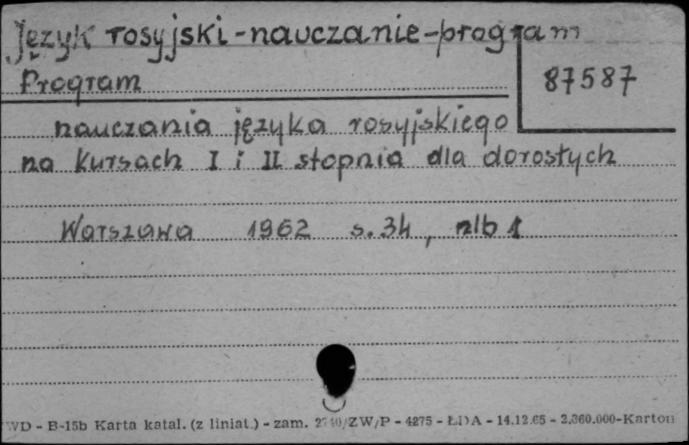 Język rosyjski-nauczanie-program
Program
87587
nauczania języka rosyjskiego
na kursach I i II stopnia dla dorosłych
Warszawa 1962 s.34, nlb 1
WD - B-15b Karta katal. (z liniat.) - zam. 2740/ZW/P - 4275 - ŁDA - 14.12.65 - 2.360.000-Karton